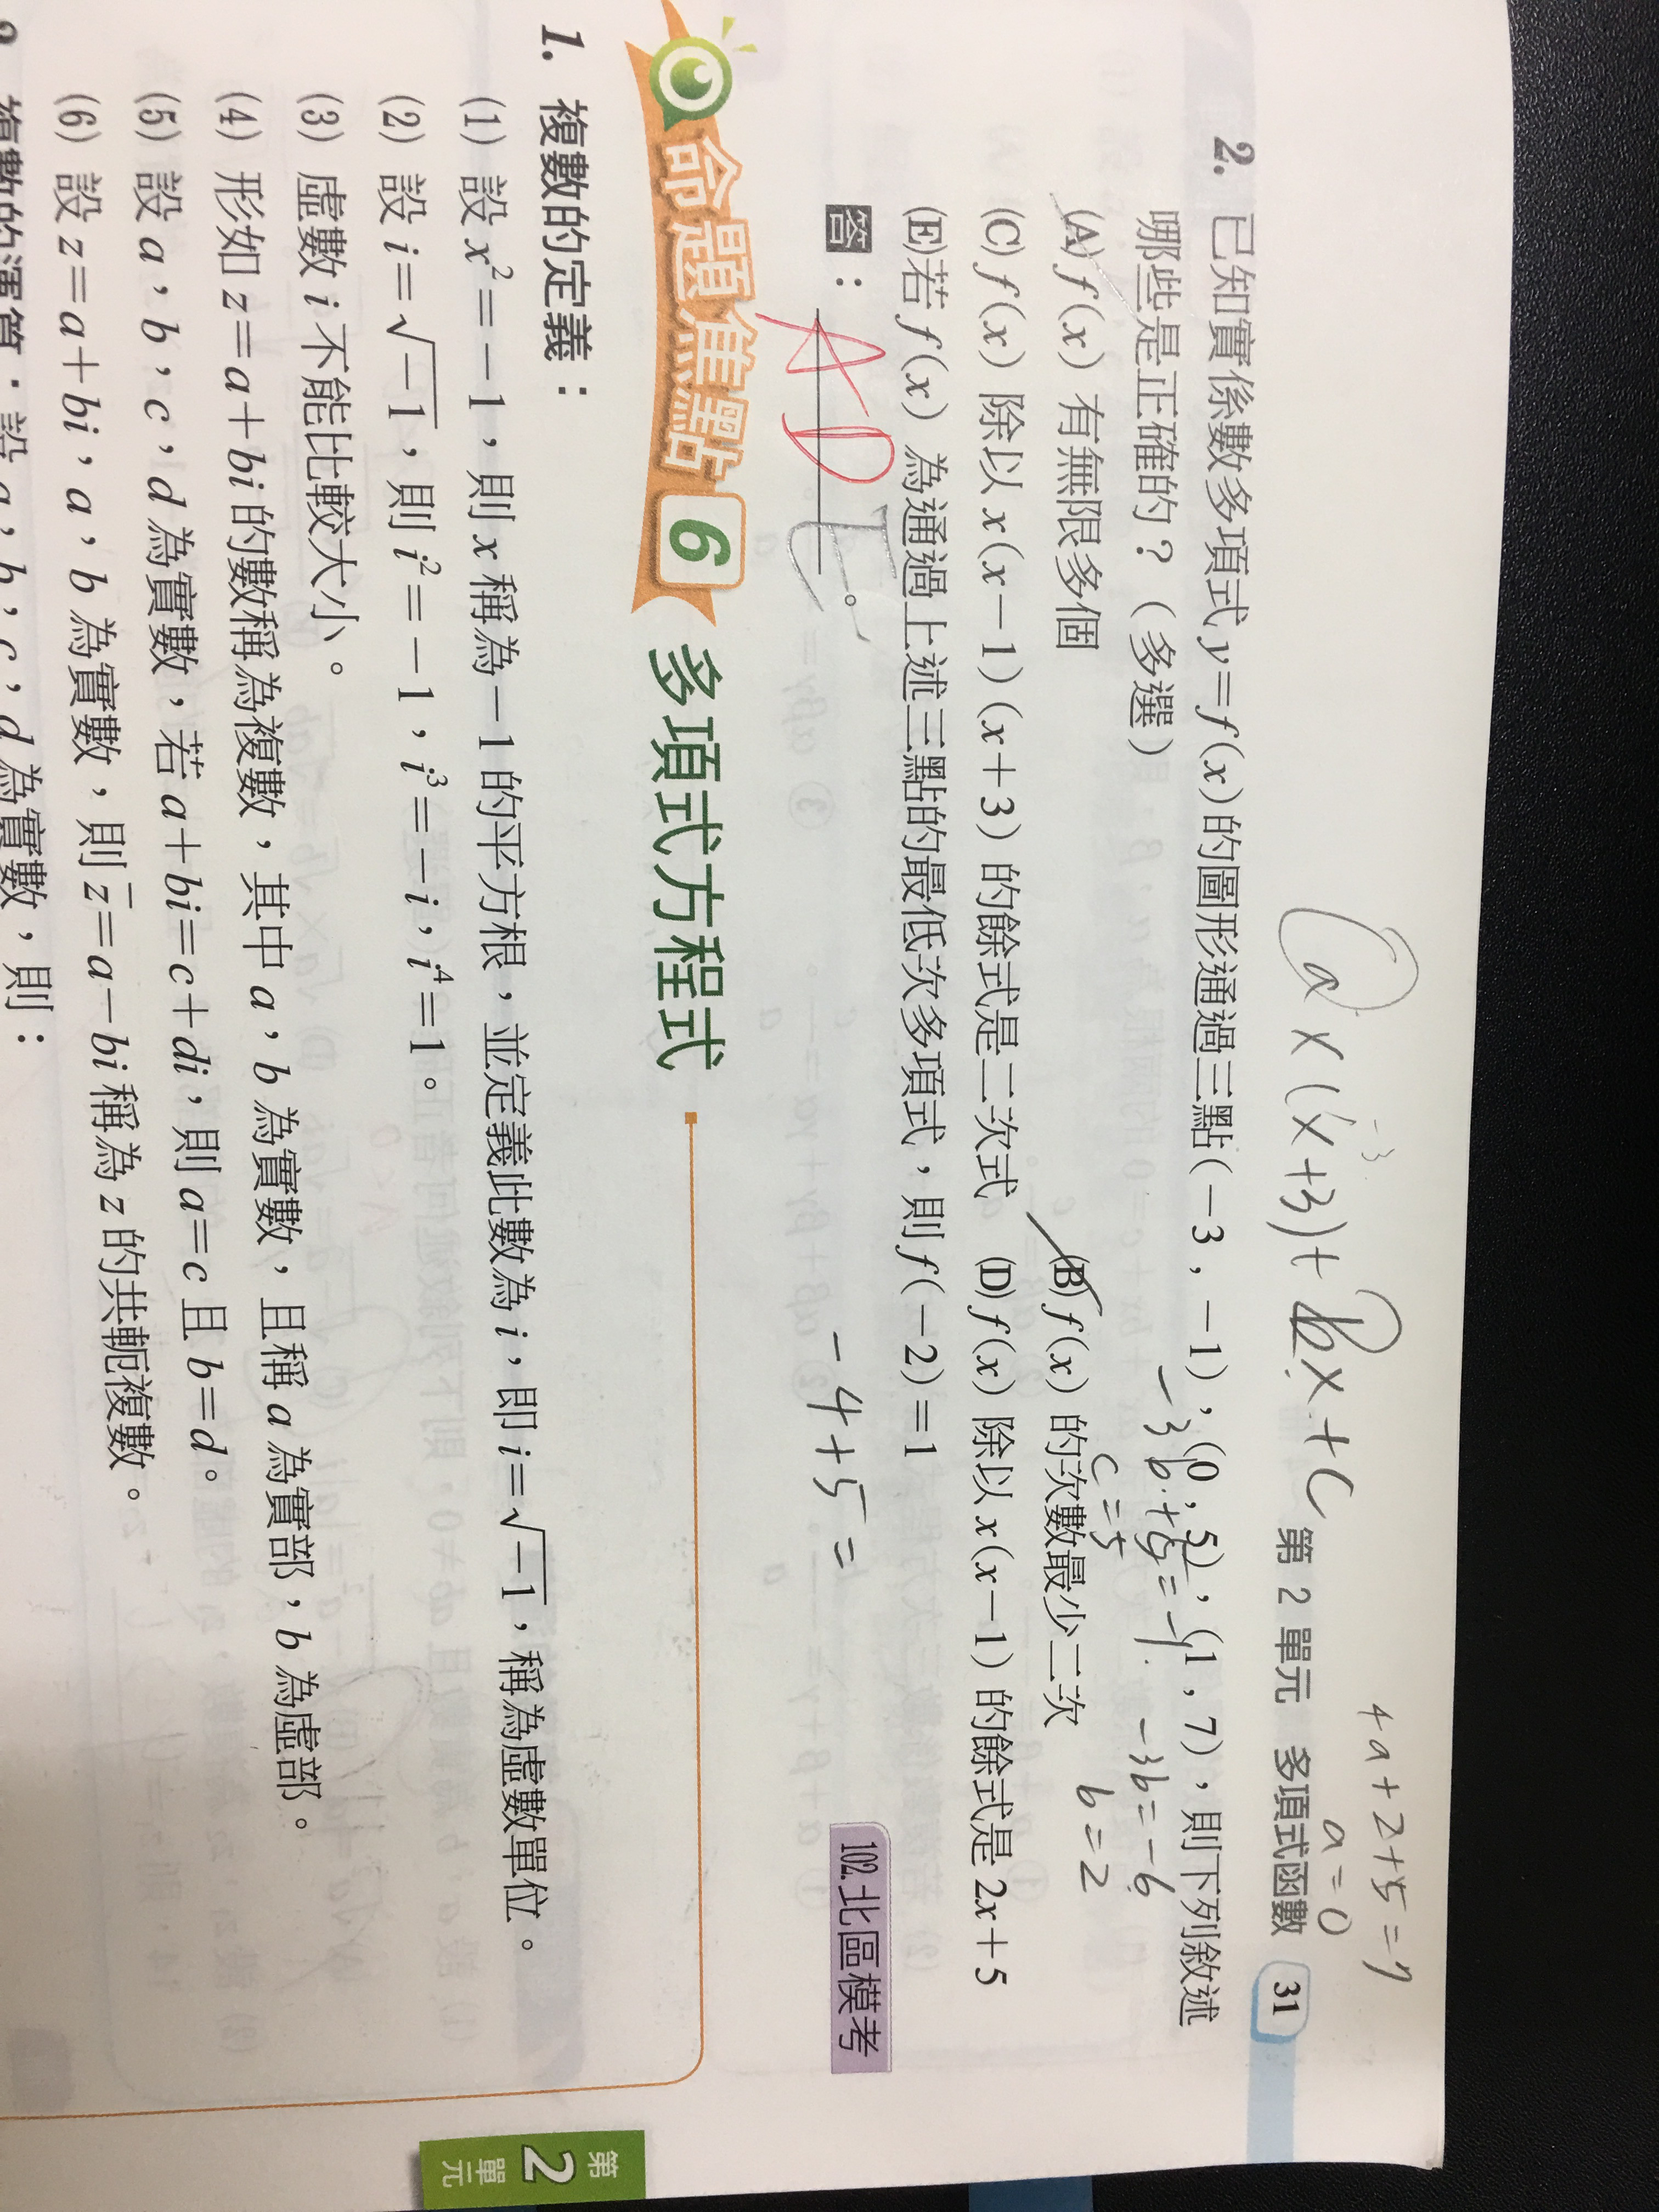 4a+2+5=7
a=0
ax(x+3)+bx+c
-3
第 2 單元 多項式函數 31
2. 已知實係數多項式 y=f(x)的圖形通過三點(-3,-1),(0,5),(1,7),則下列敘述
-3b+5=-1. -3b=-6
哪些是正確的?(多選)
c=5 b=2
(A) f(x) 有無限多個 (B) f(x) 的次數最少二次
(C) f(x) 除以 x(x-1)(x+3) 的餘式是二次式 (D) f(x) 除以 x(x-1) 的餘式是 2x+5
(E)若 f(x) 為通過上述三點的最低次多項式,則 f(-2)=1
-4+5=
答:AD。
102.北區模考
命題焦點 6 多項式方程式
1. 複數的定義:
(1) 設 x²=-1,則 x 稱為-1 的平方根,並定義此數為 i,即 i=√-1,稱為虛數單位。
(2) 設 i=√-1,則 i²=-1,i³=-i,i⁴=1。
(3) 虛數 i 不能比較大小。
(4) 形如 z=a+bi 的數稱為複數,其中 a,b 為實數,且稱 a 為實部,b 為虛部。
(5) 設 a,b,c,d 為實數,若 a+bi=c+di,則 a=c 且 b=d。
(6) 設 z=a+bi,a,b 為實數,則 z̄=a-bi 稱為 z 的共軛複數。
複數的運算:設 a,b,c,d 為實數,則:
第 2 單元